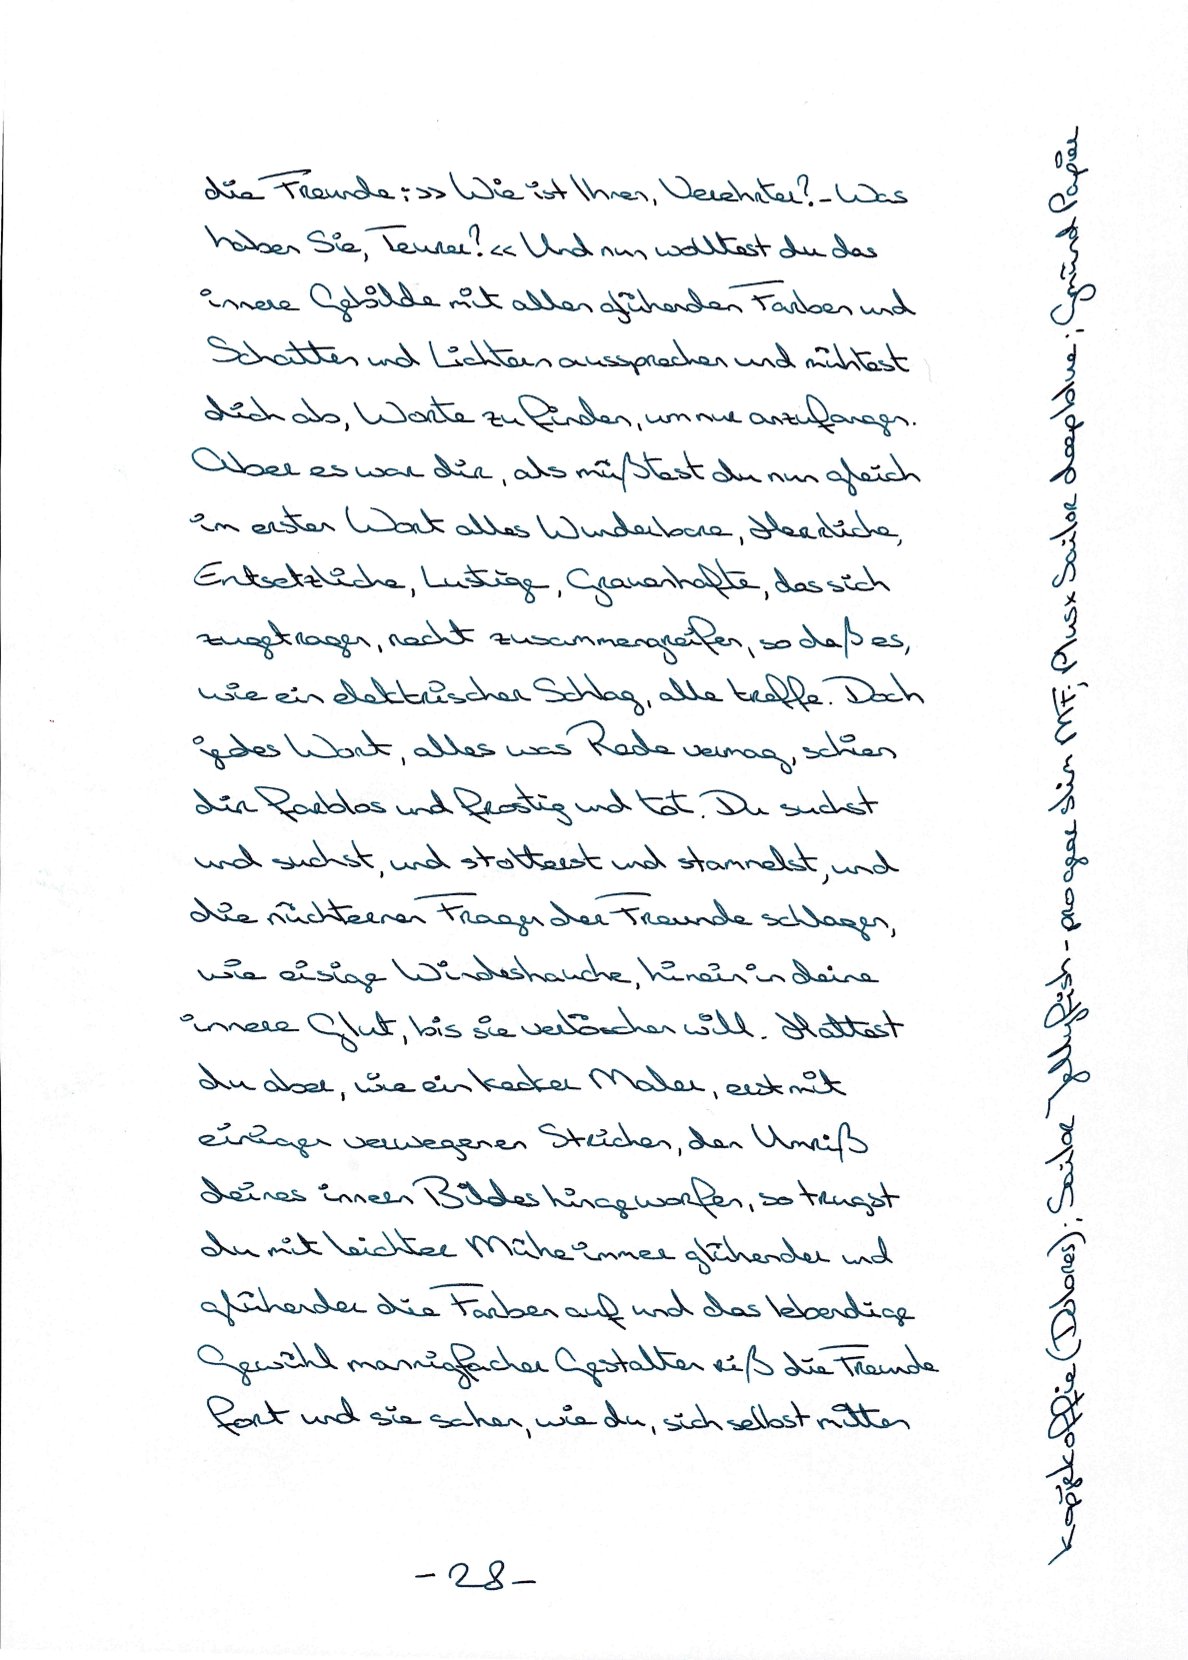 die Freunde: »Wie ist Ihnen, Verehrter? - Was
haben Sie, Teurer?« Und nun wolltest du das
innere Gebilde mit allen glühenden Farben und
Schatten und Lichtern aussprechen und mühtest
dich ab, Worte zu finden, um nur anzufangen.
Aber es war dir, als müßtest du nun gleich
im ersten Wort alles Wunderbare, Herrliche,
Entsetzliche, Lustige, Grauenhafte, das sich
zugetragen, recht zusammengreifen, so daß es,
wie ein elektrischer Schlag, alle treffe. Doch
jedes Wort, alles was Rede vermag, schien
dir farblos und frostig und tot. Du suchst
und suchst, und stotterst und stammelst, und
die nüchternen Fragen der Freunde schlagen,
wie eisige Windeshauche, hinein in deine
innere Glut, bis sie verlöschen will. Hattest
du aber, wie ein kecker Maler, erst mit
einigen verwegenen Strichen, den Umriß
deines innern Bildes hingeworfen, so trugst
du mit leichter Mühe immer glühender und
glühender die Farben auf und das lebendige
Gewühl mannigfacher Gestalten riß die Freunde
fort und sie sahen, wie du, sich selbst mitten
- 28 -
(Dolores); Sailor Jellyfish - progear slim MF; Plus x Sailor deep blue; Gmund Papier